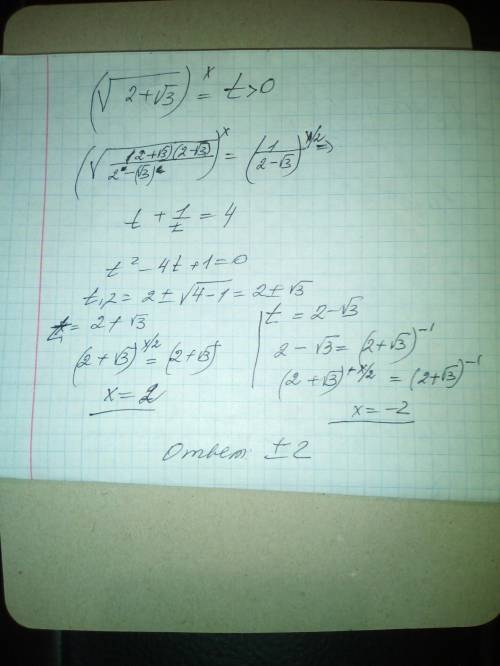 (√(2+√3))^x = t>0
(√((2+√3)(2-√3)/(2²-(√3)²)))^x = (1/(2-√3))^(x/2) ⇒
t + 1/t = 4
t² - 4t + 1 = 0
t1,2 = 2 ± √(4-1) = 2 ± √3
t₁ = 2+√3
(2+√3)^(x/2) = (2+√3)¹
x = 2
t = 2-√3
2-√3 = (2+√3)^(-1)
(2+√3)^(+x/2) = (2+√3)^(-1)
x = -2
Ответ ±2